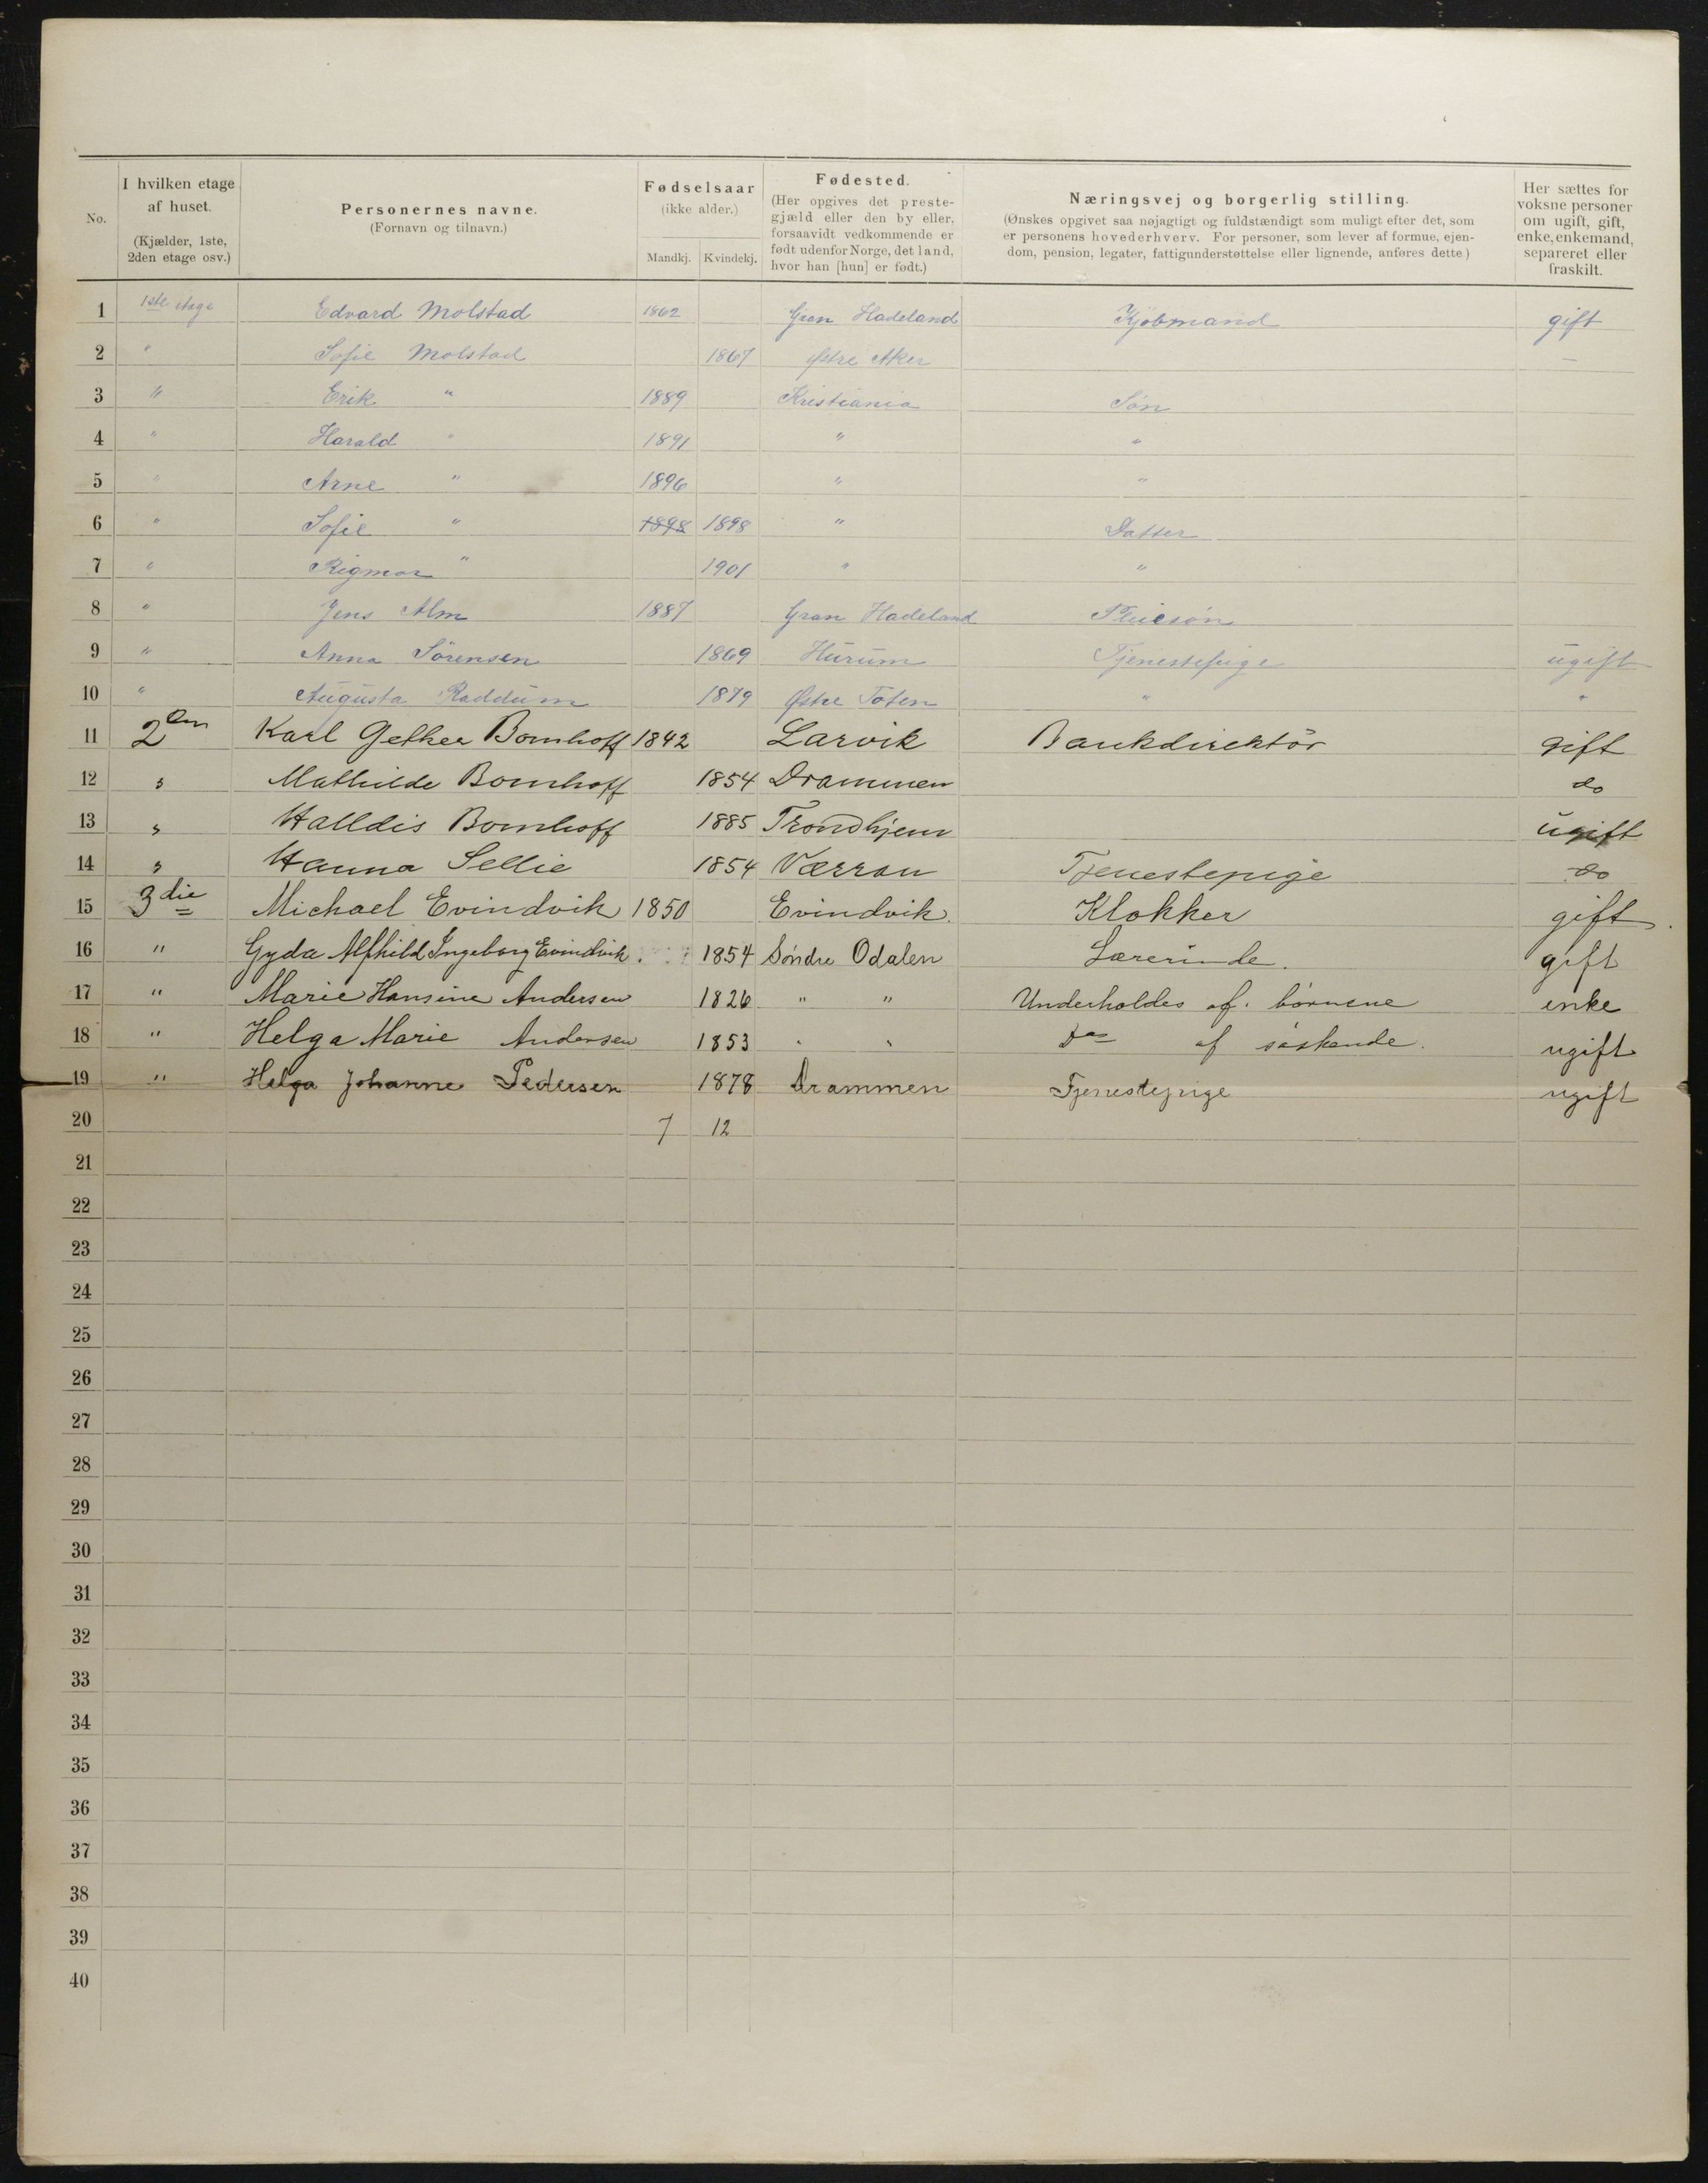 No.
I hvilken etage af huset. (Kjælder, 1ste, 2den etage osv.)
Personernes navne. (Fornavn og tilnavn.)
Fødselsaar (ikke alder.) Mandkj. Kvindekj.
Fødested. (Her opgives det prestegjæld eller den by eller, forsaavidt vedkommende er født udenfor Norge, det land, hvor han [hun] er født.)
Næringsvej og borgerlig stilling. (Ønskes opgivet saa nøjagtigt og fuldstændigt som muligt efter det, som er personens hovederhverv. For personer, som lever af formue, ejendom, pension, legater, fattigunderstøttelse eller lignende, anføres dette)
Her sættes for voksne personer om ugift, gift, enke, enkemand, separeret eller fraskilt.
1 1ste etage Edvard Molstad 1862 Gran Hadeland Kjøbmand gift
2 " Sofie Molstad 1867 Østre Aker —
3 " Erik " 1889 Kristiania Søn
4 " Harald " 1891 " "
5 " Arne " 1896 " "
6 " Sofie " 1898 1898 " Datter
7 " Rigmor " 1901 " "
8 " Jens Alm 1887 Gran Hadeland Pleiesøn
9 " Anna Sørensen 1869 Hurum Tjenestepige ugift
10 " Augusta Raddum 1879 Østre Toten " "
11 2den Karl Gether Bomhoff 1842 Larvik Bankdirektør gift
12 " Mathilde Bomhoff 1854 Drammen do
13 " Halldis Bomhoff 1885 Trondhjem ugift
14 " Hanna Sellie 1854 Værran Tjenestepige do
15 3die Michael Evindvik 1850 Evindvik. Klokker gift
16 " Gyda Alfhild Ingeborg Evindvik. 1854 Søndre Odalen Lærerinde. gift
17 " Marie Hansine Andersen 1826 " " Underholdes af. børnene enke
18 " Helga Marie Andersen 1853 " " Do af søskende. ugift
19 " Helga Johanne Pedersen 1878 Drammen Tjenestepige ugift
20 7 12
21
22
23
24
25
26
27
28
29
30
31
32
33
34
35
36
37
38
39
40